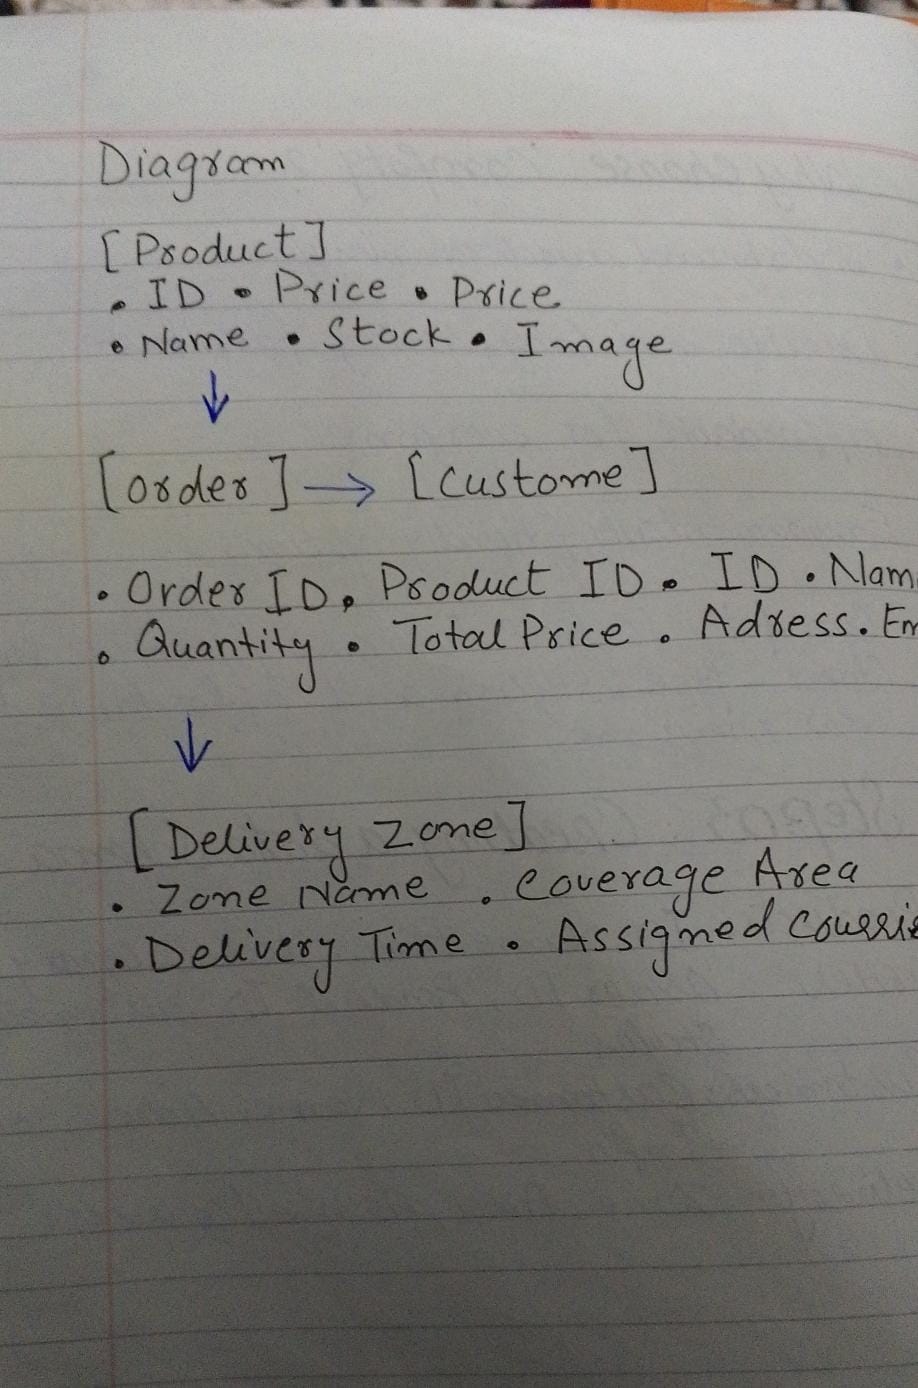 Diagram
[Product]
• ID • Price • Price
• Name • Stock • Image
↓
[order] → [Custome]
• Order ID • Product ID • ID • Nam
• Quantity • Total Price • Adress. Em
↓
[Delivery Zone]
• Zone Name • Coverage Area
• Delivery Time • Assigned Courrie